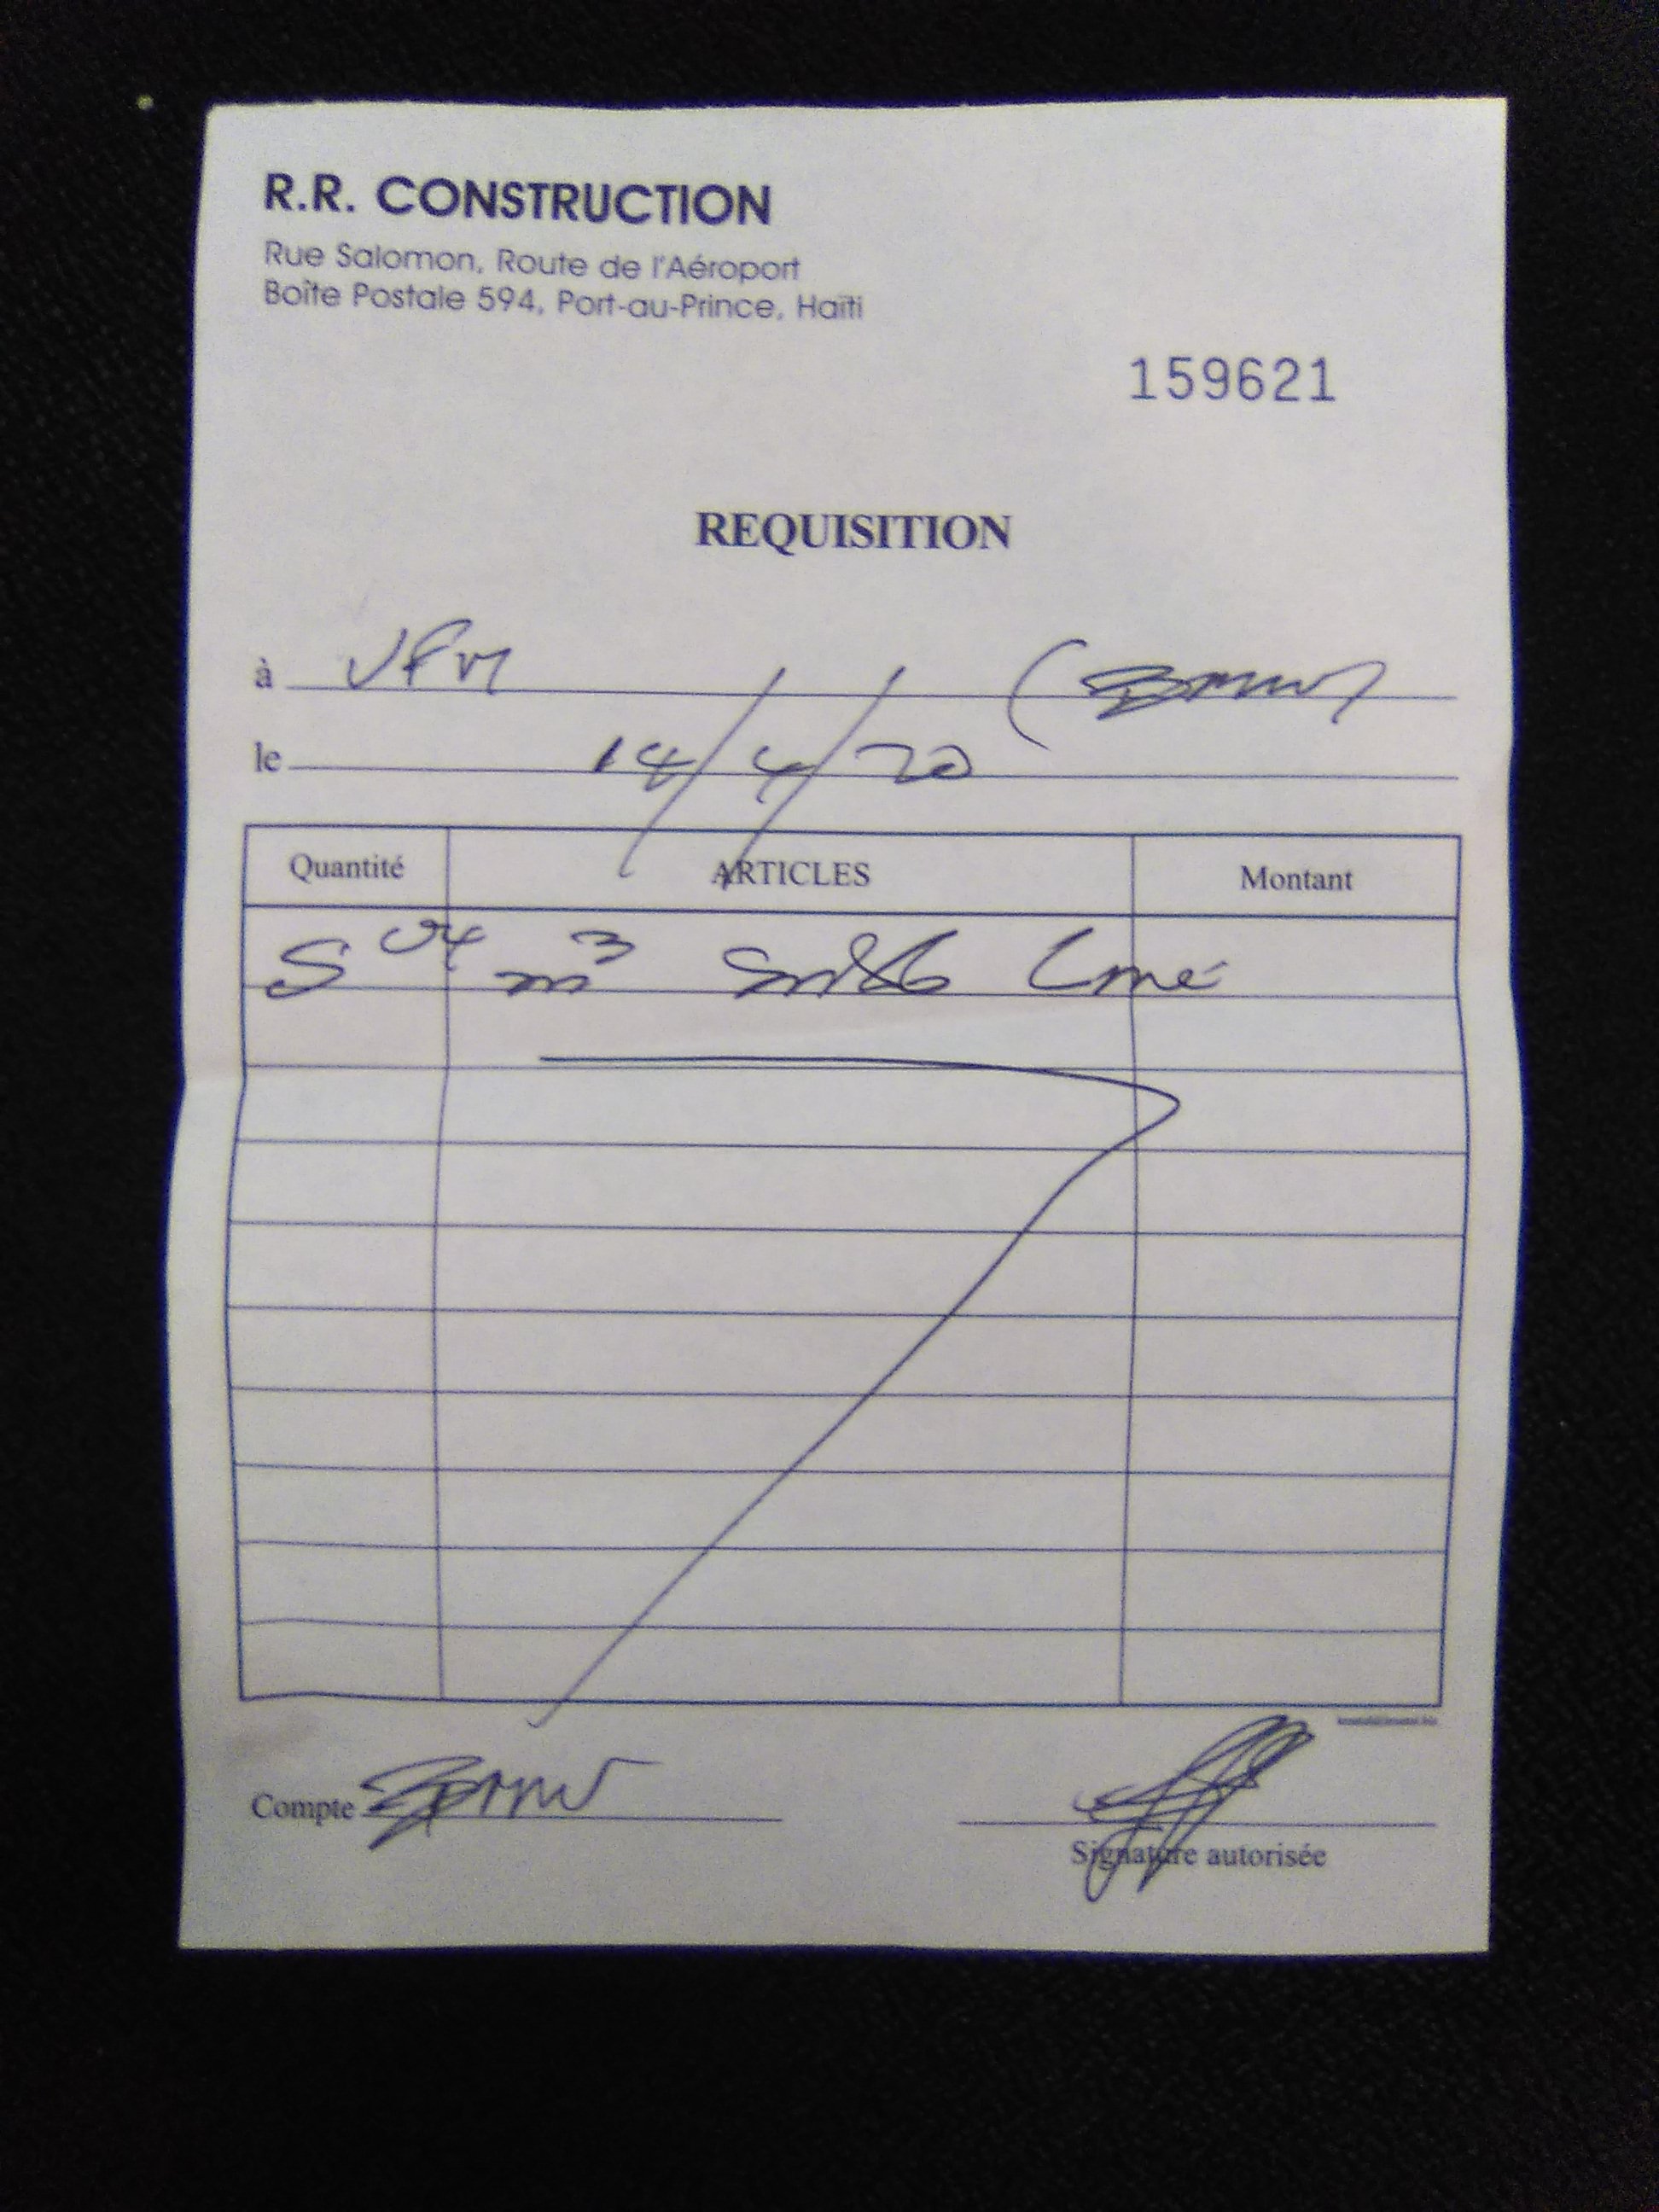 R.R. CONSTRUCTION
Rue Salomon, Route de l'Aéroport
Boîte Postale 594, Port-au-Prince, Haïti
159621
REQUISITION
à
le 14/4/20
Quantité ARTICLES Montant
m³
Compte
Signature autorisée